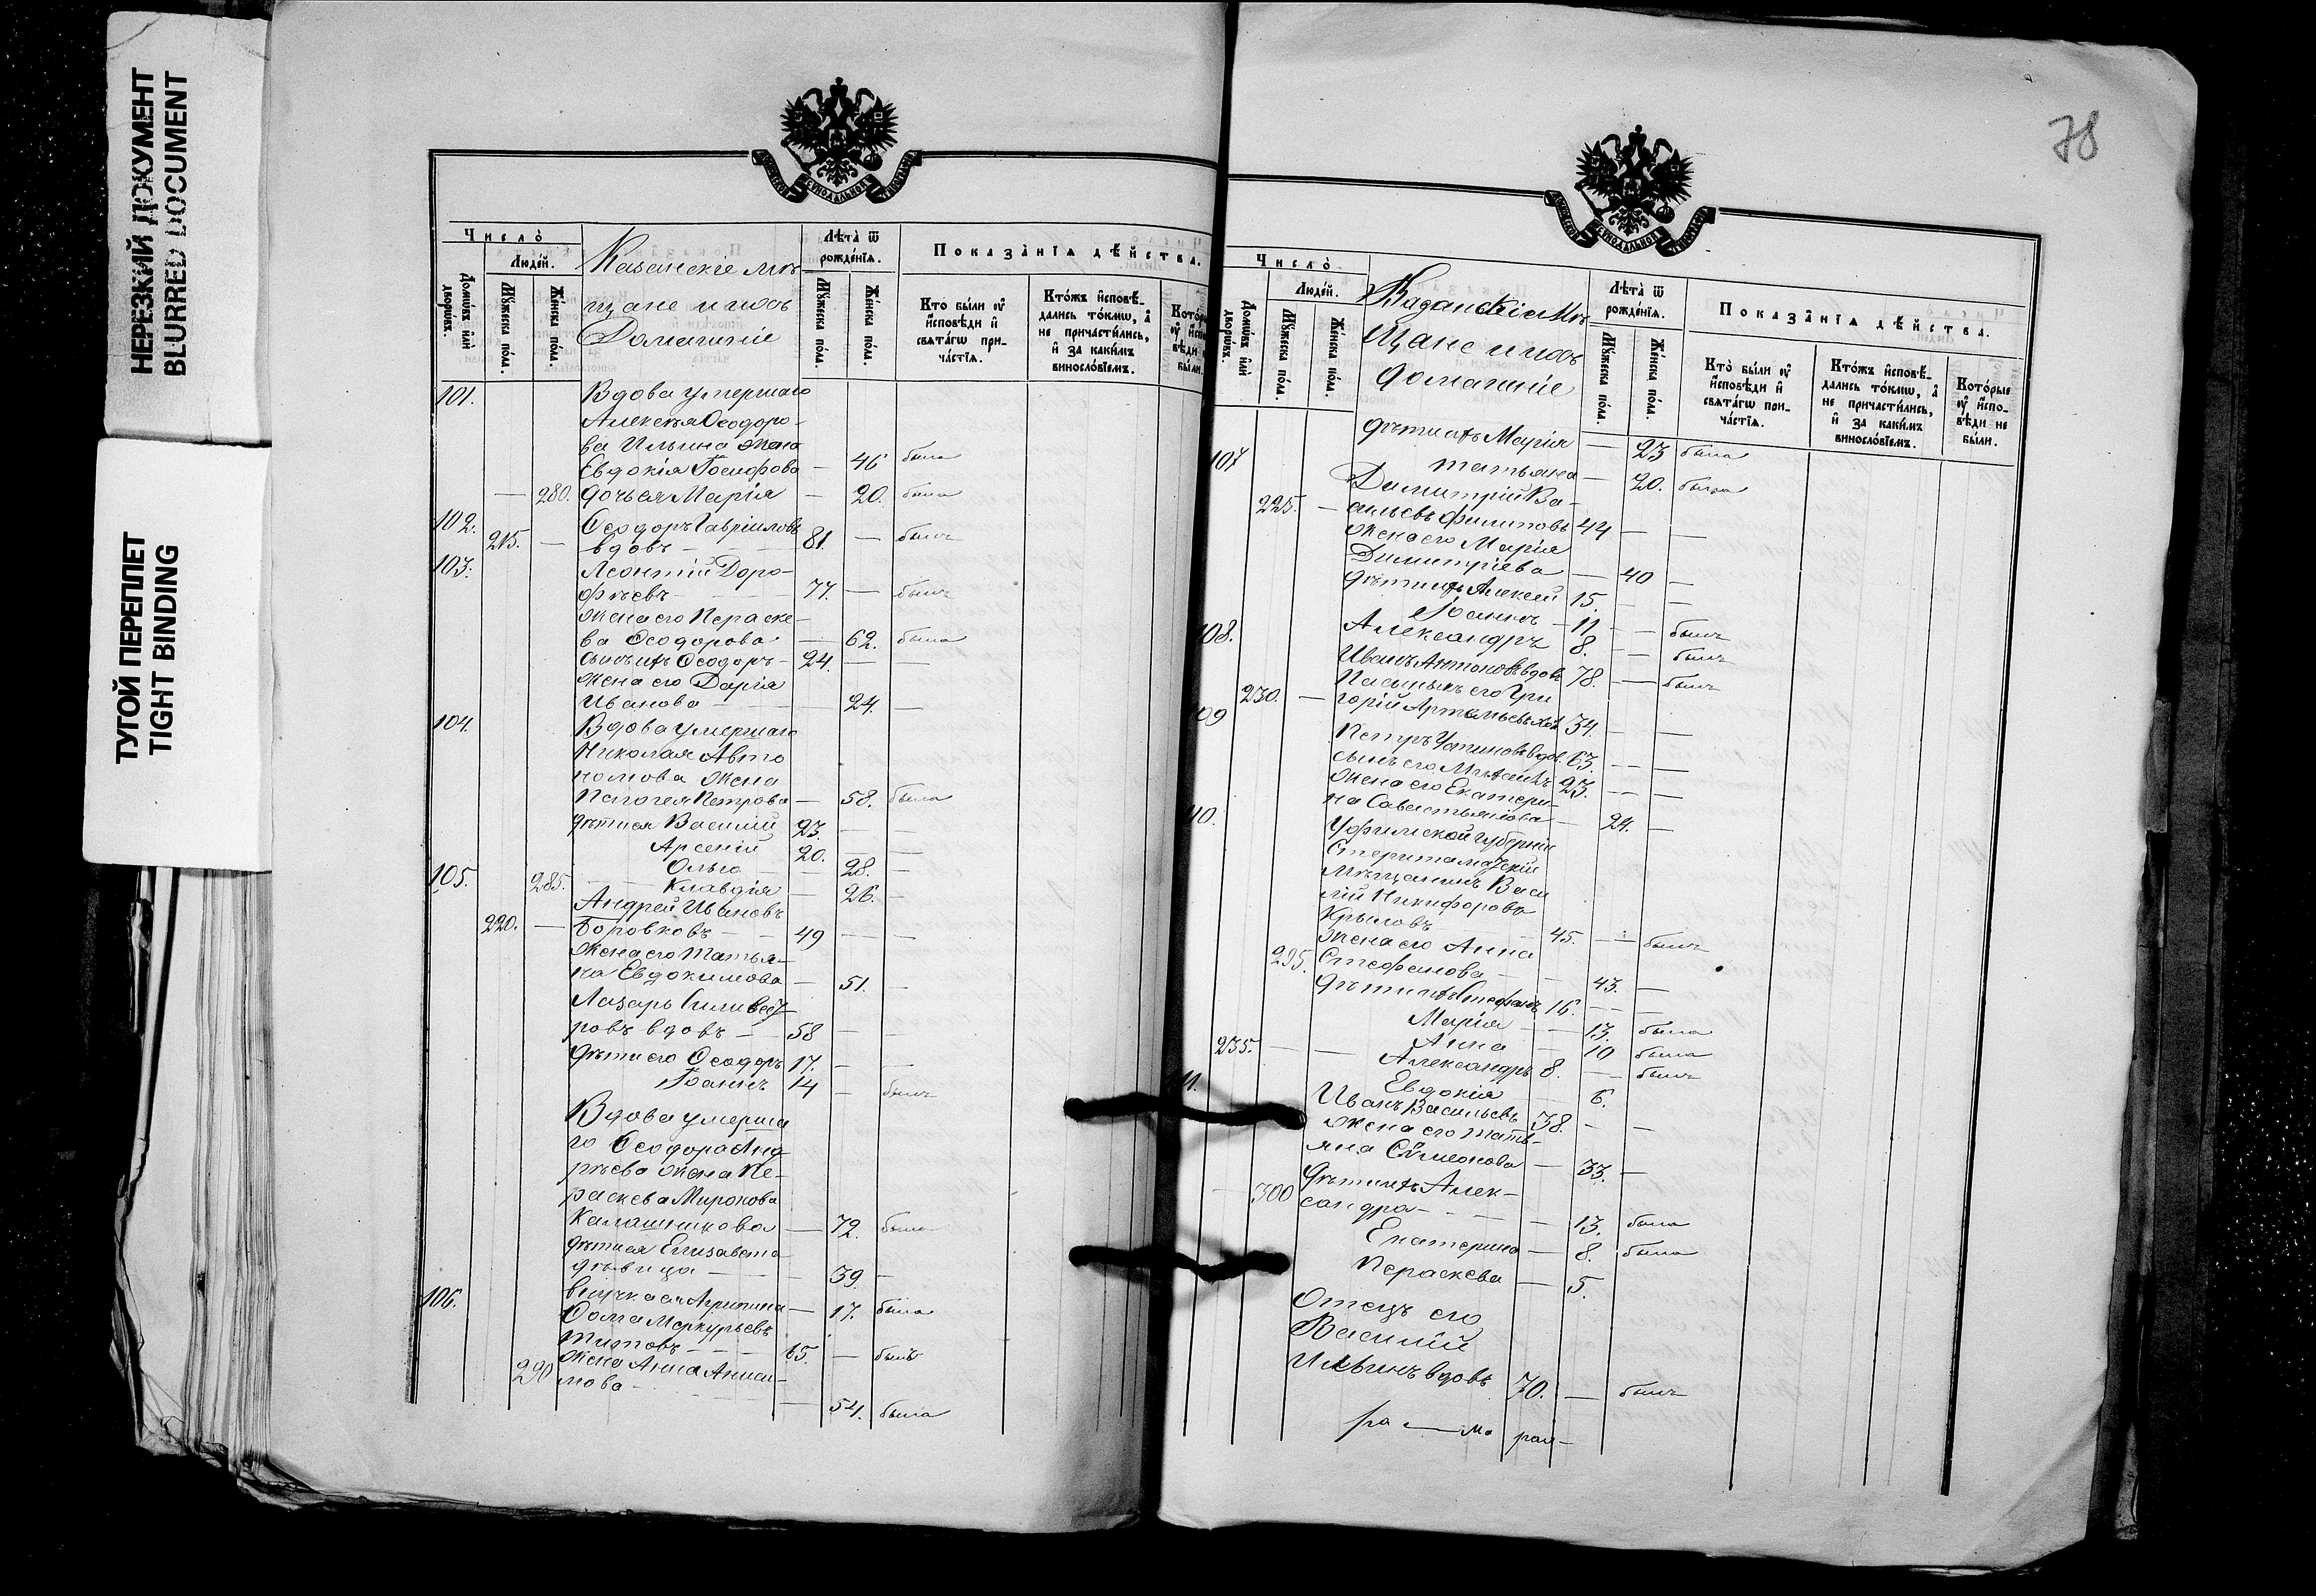 НЕРЕЗКИЙ ДОКУМЕНТ
BLURRED DOCUMENT
ТУГОЙ ПЕРЕПЛЕТ
TIGHT BINDING
Число̀
Люде́й.
Домѡ́въ илѝ дворѡ́въ.
Мꙋ́жеска по́ла.
Же́нска по́ла.
Казанскіе мѣ-
щане и ихъ
Домашніе
Лѣ́та ѿ рожде́нїѧ.
Мꙋ́жеска по́ла.
Же́нска по́ла.
Показа̑нїѧ дѣ́йства.
Кто̀ бы́ли ᲂу҆ и҆́сповѣди и҆ свѧта́гѡ при-ча́стїѧ.
Кто́жъ и҆сповѣ́-дались то́кмѡ, а҆ не причасти́лись, и҆ за каки́мъ виносло́вїемъ.
101.
Вдова умершаго
Алексѣя Ѳеодоро-
ва Ильина жена
Евдокія — 46 была
— 280. дочь ея Марія — 20. была
102. Ѳеодоръ Гавріиловъ
215. — вдовъ — 81. — былъ
103. Леонтій Доро-
фѣевъ — 77. — былъ
жена его Параске-
ва Ѳеодорова — 62. была
сынъ ихъ Ѳеодоръ — 24. — —
жена его Дарія
Иванова — 24. —
104. Вдова умершаго
Николая Авто
номова жена
Пелагея Петрова — 58. была
дѣти ея Василій 23. — —
Арсеній 20. — —
Ольга — 28. —
105. 285. Клавдія — 26. —
Андрей Ивановъ
220. — Боровковъ — 49 — —
жена его Татья-
на Евдокимова — 51. —
Лазарь Силивест
ровъ вдовъ — 58 — —
дѣти его Ѳеодоръ 17. — —
Іоаннъ 14 — былъ
Вдова умерша
го Ѳеодора Анд
рѣева жена Па-
раскева Миронова
Калашникова — 72. была
дѣти ея Елизавета
дѣвица — 39. —
внучка ея Агрипина — 17. была
106. Ѳома Меркурьевъ
Титовъ — 65. — былъ
жена Анна Аниси-
290 мова — 54. была
78
Число̀
Люде́й.
Домѡ́въ илѝ дворѡ́въ.
Мꙋ́жеска по́ла.
Же́нска по́ла.
Казанскіе мѣ
щане и ихъ
домашніе
Лѣ́та ѿ рожде́нїѧ.
Мꙋ́жеска по́ла.
Же́нска по́ла.
Показа̑нїѧ дѣ́йства.
Кто̀ бы́ли ᲂу҆ и҆́сповѣди и҆ свѧта́гѡ при-ча́стїѧ.
Кто́жъ и҆сповѣ́-дались то́кмѡ, а҆ не причасти́лись, и҆ за каки́мъ виносло́вїемъ.
Кото́рые ᲂу҆ и҆́спо-вѣди не бы́ли.
дѣти ихъ Марія — 23 была
107 Татьяна — 20. была
Димитрій Ва-
225. — сильевъ Филиповъ 44 — —
жена его Марія
Димитріева — 40 —
дѣти ихъ Алексѣй 15. — —
Іоаннъ — 11 — былъ
108. Александръ 8. — былъ
Иванъ Антоновъ вдовъ 78. — былъ
Пасынокъ его Гри
230. — горій Артемьевъ 34. — —
109 Петръ Устиновъ вдов. 63. — —
сынъ его 23. — —
жена его Екатери-
на Савастьянова — 24. —
110. Уфимской губерніи
Стерлитамакскій
мѣщанинъ Васи
лій Никифоровъ
Крыловъ — 45. — былъ
жена его Анна
295. Стефанова — 43. —
дѣти ихъ Стефанъ 16. — —
Марія — 13. была
Анна — 10 была
235. — — Александръ 8. — былъ
Евдокія — 6.
11. Иванъ Васильевъ 38. — —
жена его Тать-
яна Сѵмеонова — 33. —
дѣти ихъ Алек-
— 300 сандра — 13. была
Екатерина — 8. была
Параскева — 5.
Отецъ его
Василій
Ильинъ вдовъ 70. — былъ